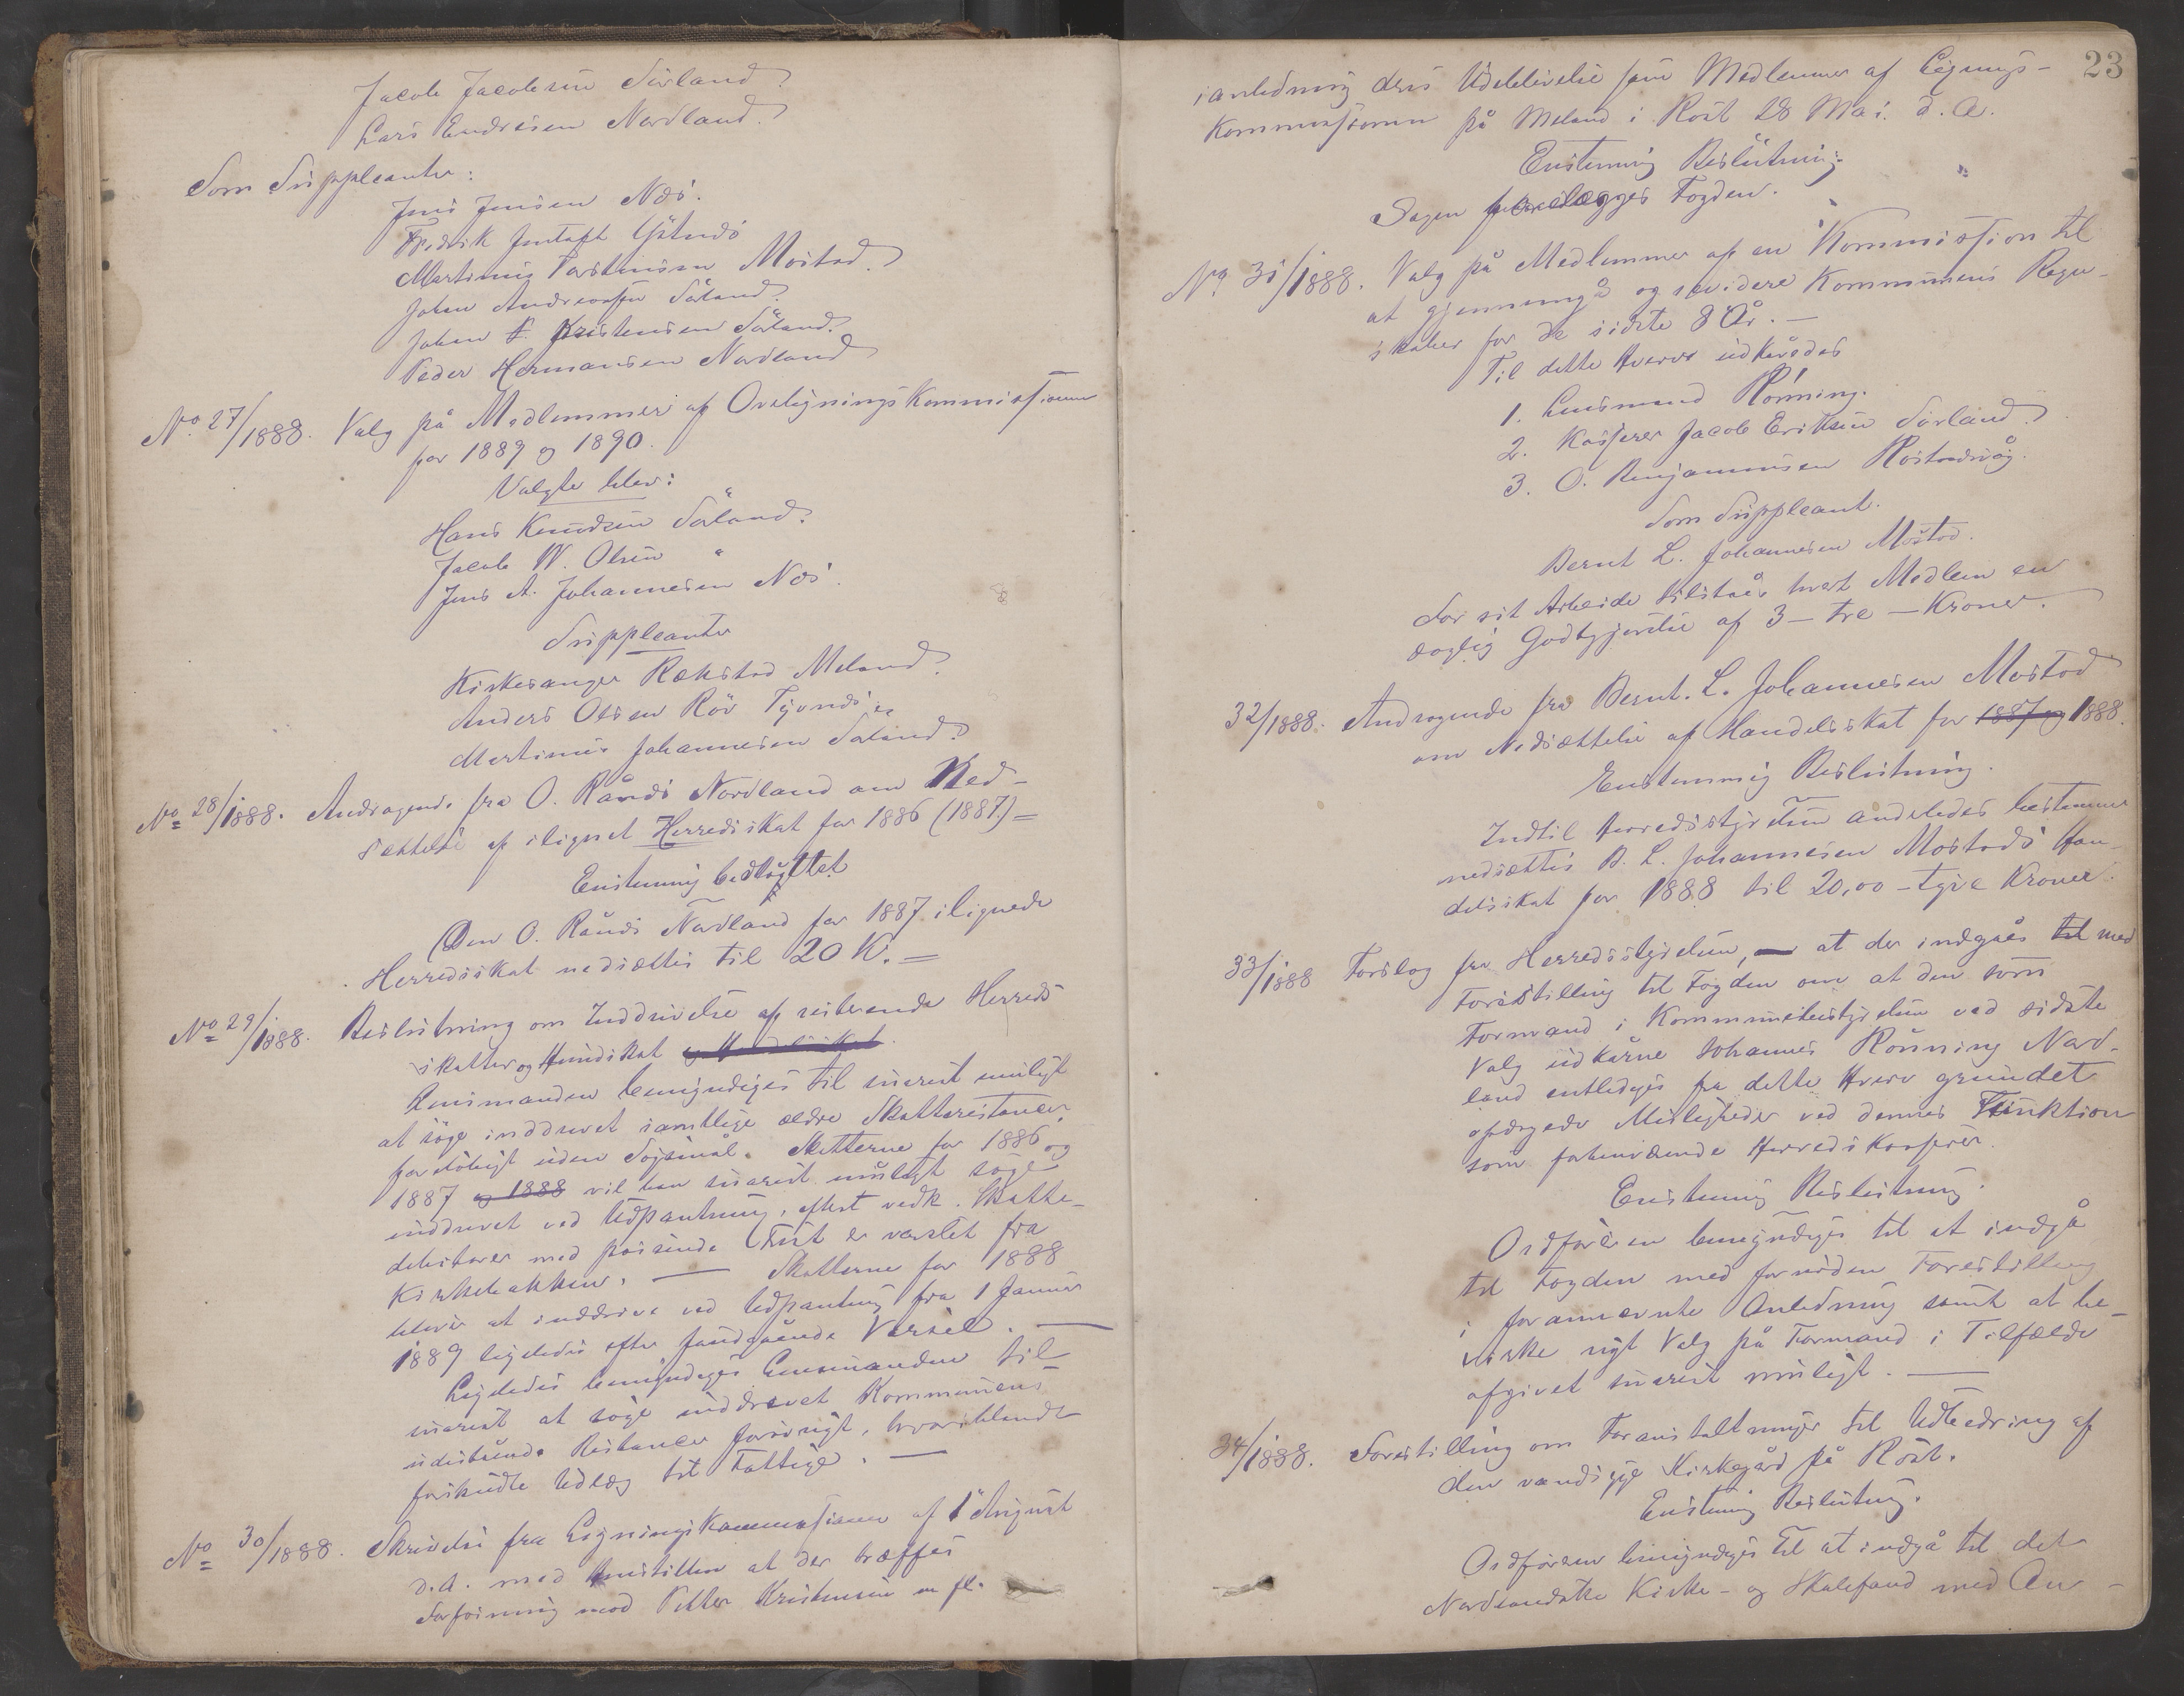 Jacob Jacobsen Sörland
Lars Endresen Nordland.
Som Suppleanter:
Jens Jensen Næs.
Fredrik
Martinus Torstensen Mostad.
Johan Andreassen Söland.
Johan Kristensen Söland.
Peder Hermansen Nordland
No 27/1888. Valg på Medlemmer af OverligningsKommissionen
for 1889 og 1890.
Valgte blev:
Hans Knudsen Söland.
Jacob W. Olsen "
Jens A. Johannesen Næs.
Suppleanter
Kirkesanger Rækstad Meland.
Anders Olsen Röv Tyvnes og
Martinus Johannesen Söland.
No 28/1888. Andragende fra O. Rånds Nordland om Ned-
sættelse af ilignet Herredsskat for 1886 (1887) –
Enstemmig besluttet
Den O. Rånds Nordland for 1887 ilignede
Herredsskat nedsættes til 20 K. –
No 29/1888. Beslutning om Inddrivelse af resterende Herreds
skatter og Hundskat og Handelsskat.
Lensmanden bemyndiges til snarest muligt
at söge inddrevet samtlige ældre Skatterestancer,
forelöbigt uden Sögsmål. Skatterne for 1886 og
1887 og 1888 vil han snarest muligt söge
inddrevet ved Udpantning, efterat vedk. Skatte-
debitorer med passende Frist er varslet fra
Kirkebakken. — Skatterne for 1888
bliver at inddrive ved Udpantning fra 1 Januar
1889 ligeledes efter foregående Varsel. —
Ligeledes bemyndiges Lensmanden til
snarest at söge inddrevet Kommunens
udestående Restancer forövrigt, hvoriblandt
forskudte Udlæg til Fattige. —
No 30/1888. Skrivelse fra LigningsKommissionen af 1 August
d.A. med Henstillen at der træffes
Forföining mod Petter Kristensen m fl.
23
ianledning deres Udeblivelse som Medlemmer af Lignings-
Kommissionen på Meland i Röst 28 Mai d. A.
Enstemmig Beslutning:
Sagen forelægges Fogden.
No 31/1888. Valg på Medlemmer af en Kommission til
at gjennemgå og revidere Kommunens Regn-
skaber for de sidste 8 År. –
Til dette Hverv udkåredes
1. Lensmand Rönning.
2. Kasserer Jacob Eriksen Sörland.
3. O. Benjaminsen Röstnesvåg.
Som Suppleant.
Bernt L. Johannesen Mostad.
For sit Arbeide tilståes hvert Medlem en
daglig Godtgjörelse af 3 – tre – Kroner.
32/1888. Andragende fra Bernt. L. Johannesen Mostad
om Nedsættelse af Handelsskat for 1887 og 1888.
Enstemmig Beslutning.
Indtil Herredsstyrelsen anderledes bestemmer
nedsættes B. L. Johannesen Mostads Han-
delsskat for 1888 til 20,00 – tyve Kroner.
33/1888 Forslag fra Herredsstyrelsen, at der indgåes til med
Forestilling til Fogden om at den som
Formand i Kommunebestyrelsen ved sidste
Valg udkårne Johannes Rönning Nord-
land entlediges fra dette Hverv grundet
opdagede Misligheder ved dennes Funktion
som forhenværende HerredsKasserer.
Enstemmig Beslutning.
Ordföreren bemyndiges til at indgå
til Fogden med fornöden Forestilling
i forannævnte Anledning samt at be-
virke nyt Valg på Formand i Tilfælde
afgivet snarest muligt. —
34/1888. Forestilling om Foranstaltninger til Udbedring af
den vandsyge Kirkegård på Röst.
Enstemmig Beslutning.
Ordföreren bemyndiges til at indgå til det
Nordlandske Kirke- og Skolefond med An-